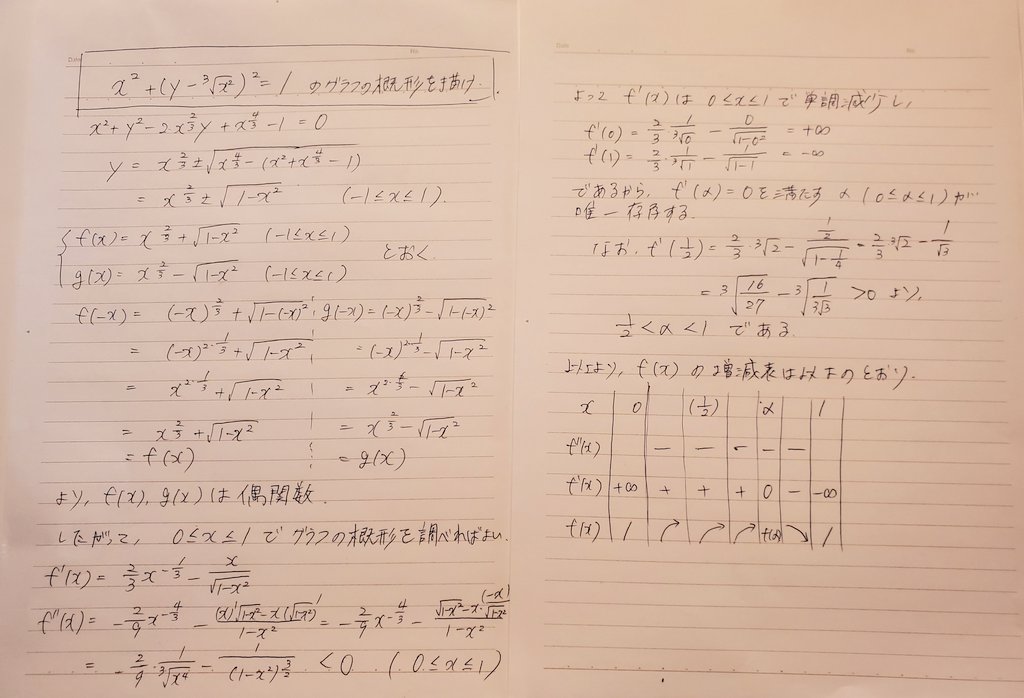 x² + (y - ³√x²)² = 1 のグラフの概形を描け.
x² + y² - 2·x^(2/3)y + x^(4/3) - 1 = 0
y = x^(2/3) ± √(x^(4/3) - (x² + x^(4/3) - 1))
= x^(2/3) ± √(1-x²) (-1≦x≦1).
{ f(x) = x^(2/3) + √(1-x²) (-1≦x≦1)
g(x) = x^(2/3) - √(1-x²) (-1≦x≦1) とおく.
f(-x) = (-x)^(2/3) + √(1-(-x)²) g(-x) = (-x)^(2/3) - √(1-(-x)²)
= (-x)^(2·1/3) + √(1-x²) = (-x)^(2·1/3) - √(1-x²)
= x^(2·1/3) + √(1-x²) = x^(2·1/3) - √(1-x²)
= x^(2/3) + √(1-x²) = x^(2/3) - √(1-x²)
= f(x) = g(x)
より, f(x), g(x) は偶関数.
したがって, 0≦x≦1 でグラフの概形を調べればよい.
f'(x) = 2/3 x^(-1/3) - x/√(1-x²)
f''(x) = -2/9 x^(-4/3) - ((x)'√(1-x²) - x(√(1-x²))')/(1-x²) = -2/9 x^(-4/3) - (√(1-x²) - x·(-x)/√(1-x²))/(1-x²)
= -2/9 · 1/³√x⁴ - 1/(1-x²)^(3/2) < 0 (0≦x≦1)
よって f'(x) は 0≦x≦1 で単調減少し,
f'(0) = 2/3 · 1/³√0 - 0/√(1-0²) = +∞
f'(1) = 2/3 · 1/³√1 - 1/√(1-1) = -∞
であるから, f'(α) = 0 を満たす α (0≦α≦1) が
唯一存在する.
なお, f'(1/2) = 2/3 · ³√2 - (1/2)/√(1-1/4) = 2/3 ³√2 - 1/√3
= ³√(16/27) - ³√(1/(3√3)) > 0 より,
1/2 < α < 1 である.
以上より, f(x) の増減表は以下のとおり.
x 0 (1/2) α 1
f''(x) - - - - -
f'(x) +∞ + + + 0 - -∞
f(x) 1 ↗ ↗ ↗ f(α) ↘ 1